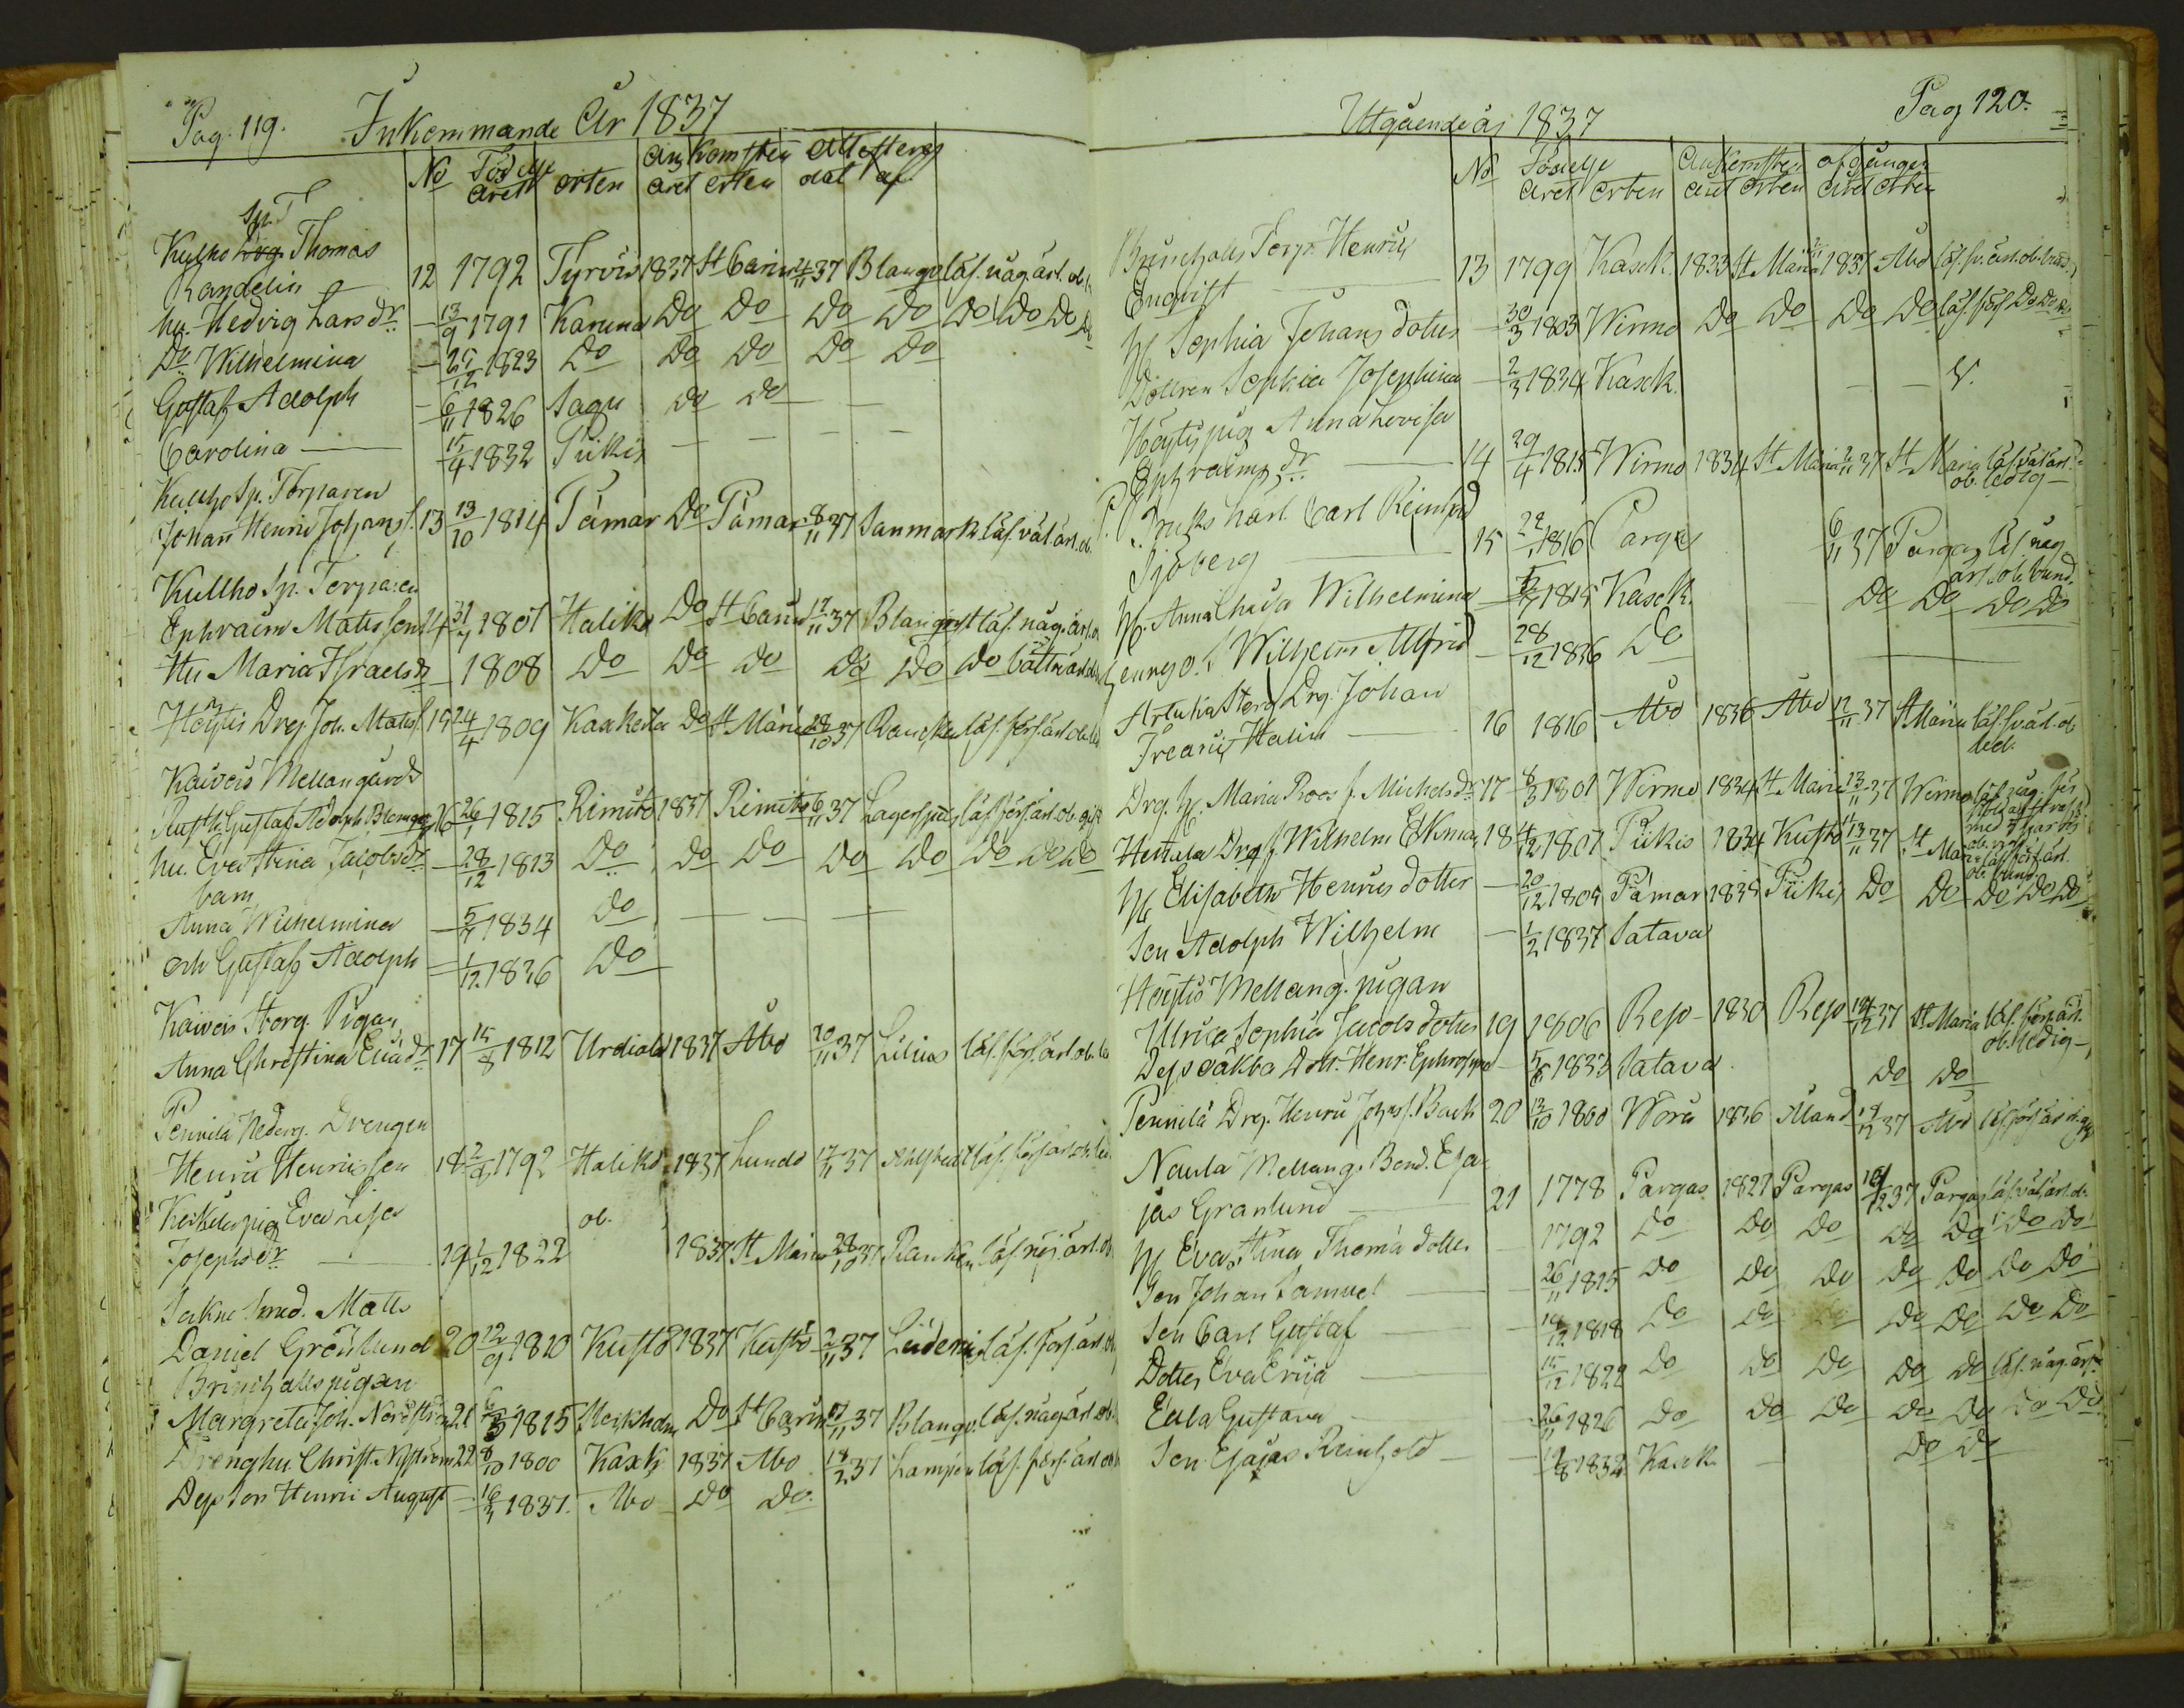 Pag. 119. Inkommande År 1837
No Födelse ankomsten attesten
året orten året orten dat af
Sp. T
Kulho Drg Thomas
Randelin 12 1792 Tyrvis 1837 St Carin 37 Blangv läs. någ. ärl. ob.
hu. Hedvig Lars dr 13/9 1791 Karuna Do Do Do Do Do Do Do Do
Do Wilhelmina 29/12 1823 Do Do Do Do Do
Gustaf Adolph 6/11 1826 Sagu Do Do
Carolina 15/4 1832 Piikis
Kullho Sp. Torparen
Johan Henric Johans s. 13 13/10 1814 Pämar Do Pämar 8/11 37 Sanmark läs. väl ärl. ob.
Kullho Sp. Torparen
Ephraim Matsson 14 31/7 1801 Haliko Do St Carin 17/11 37 Blangvst läs. någ. ärl. o
Hu Maria Israels dr 1808 Do Do Do Do Do Do bättre
Höytis Drg Joh. Mats s. 15 24/4 1809 Kaxkerta Do St Maria 28/10 37 Rancken läs. förs. ärl. ob. led
Kaivois Mellangårds
Rusth. Gustaf Adolph Blomqv 16 26/1 1815 Rimito 1837 Rimito 6/11 37 Lagerspetz läs förs. ärl. ob. gift
hu. Eva Stina Jacobs dr 28/12 1813 Do Do Do Do Do Do Do Do
barn
Anna Wilhelmina 5/7 1834 Do
och Gustaf Adolph 1/12 1836 Do
Kaivois Storg. Pigan
Anna Christina Eric dr 17 15/8 1812 Urdiala 1837 Åbo 20/11 37 Lilius läs. förs. ärl. ob. led
Pennila Nederg. Drengen
Henric Henricsson 18 2/8 1792 Haliko 1837 Lundo 17/11 37 Ahlstedt läs. förs. ärl. ob. led.
Keskilä pig Eva Lisa
Josephs dr 19 1/12 1822 ob. 1837 St Maria 28/10 37 Rancken läs. nöj. ärl. ob
Smed. Matts
Daniel Grönlund 20 12/9 1810 Kustö 1837 Kustö 2/11 37 läs. förs. ärl. ob
Brinkhalls pigan
Margreta Joh. Nordström 21 6/3 1815 Do St Carin 17/11 37 Blangv. läs. någ ärl. ob.
Drenghu. Christ. Nyström 22 8/10 1800 Kaxk 1837 Åbo 18/12 37 Lampen läs. förs. ärl. ob
Des son Henric August 16/3 1837. Åbo Do Do.
Utgående år 1837 Pag 120.
No Födelse Ankomsten afgången
året orten året orten året orten
Brinkhalls Torp. Henric
Enqvist 13 1799 Kaxk. 1833 St Maria 1837 Åbo läs. sv. ärl. ob. bund.
H. Sophia Johans dotter 30/3 1803 Wirmo Do Do Do Do läs. förs Do Do Do
Dottren Sophia Josephina 2/3 1834 Kaxk.
Höytis pig Anna Lovisa
Ephraims dr 14 29/4 1815 Wirmo 1834 St Maria 2/11 37 St Maria läs. väl ärl.
ob. ledig
karl. Carl Reinhold
Sjöberg 15 22/11 1816 Pargas 6/11 37 Pargas läs någ
ärl. ob. bund.
H. Anna Wilhelmina 5/7 1815 Kaxk. Do Do Do Do
s. Wilhelm Alfrid 28/12 1836 Do
Artukka Storg Drg. Johan
Frearic Halin 16 1816 Åbo 1836 Åbo 12/11 37 St Maria läs. sv. ärl. ob
led.
Drg. H. Maria Roos f. Michels dr 17 8/3 1801 Wirmo 1834 St Maria 13/11 37 Wirmo läs någ.
Hertula Drg. f. Wilhelm Ekman 18 4/12 1807 Piikis 1834 Kustö 13/11 37 St Maria läs förs ärl.
ob. bund.
H. Elisabeth Henrics dotter 20/12 1805 Pämar 1835 Piikis Do Do Do Do Do
Son Adolph Wilhelm 1/2 1837 Satava
Höytis Mellang. pigan
Ulrica Sophia Jacobs dotter 19 1806 Reso 1830 Reso 12/12 37 St Maria läs. förs. ärl.
ob. ledig
Des oäkta Dotr. Henr. Ephrosyne 5/6 1833 Satava Do Do
Pennila Drg. Henric Johans s. Back 20 13/10 1800 Wörå 1836 Åland 18/12 37 Åbo läs. förs ärl.
Naula Mellang. Bond. Esa
jas Granlund 21 1778 Pargas 1827 Pargas 18/12 37 Pargas läs. väl ärl. ob.
H Eva Stina Thomä dotter 1792 Do Do Do Do Do Do Do
Son Johan Samuel 26/11 1815 Do Do Do Do Do Do Do
Son Carl Gustaf 18/12 1818 Do Do Do Do Do Do Do
Dotter Eva Erica 15/12 1822 Do Do Do Do Do läs. någ. ärl.
Edla Gustava 26/11 1826 Do Do Do Do Do Do Do
Son Esajas Reinhold 12/8 1832 Kaxk Do Do